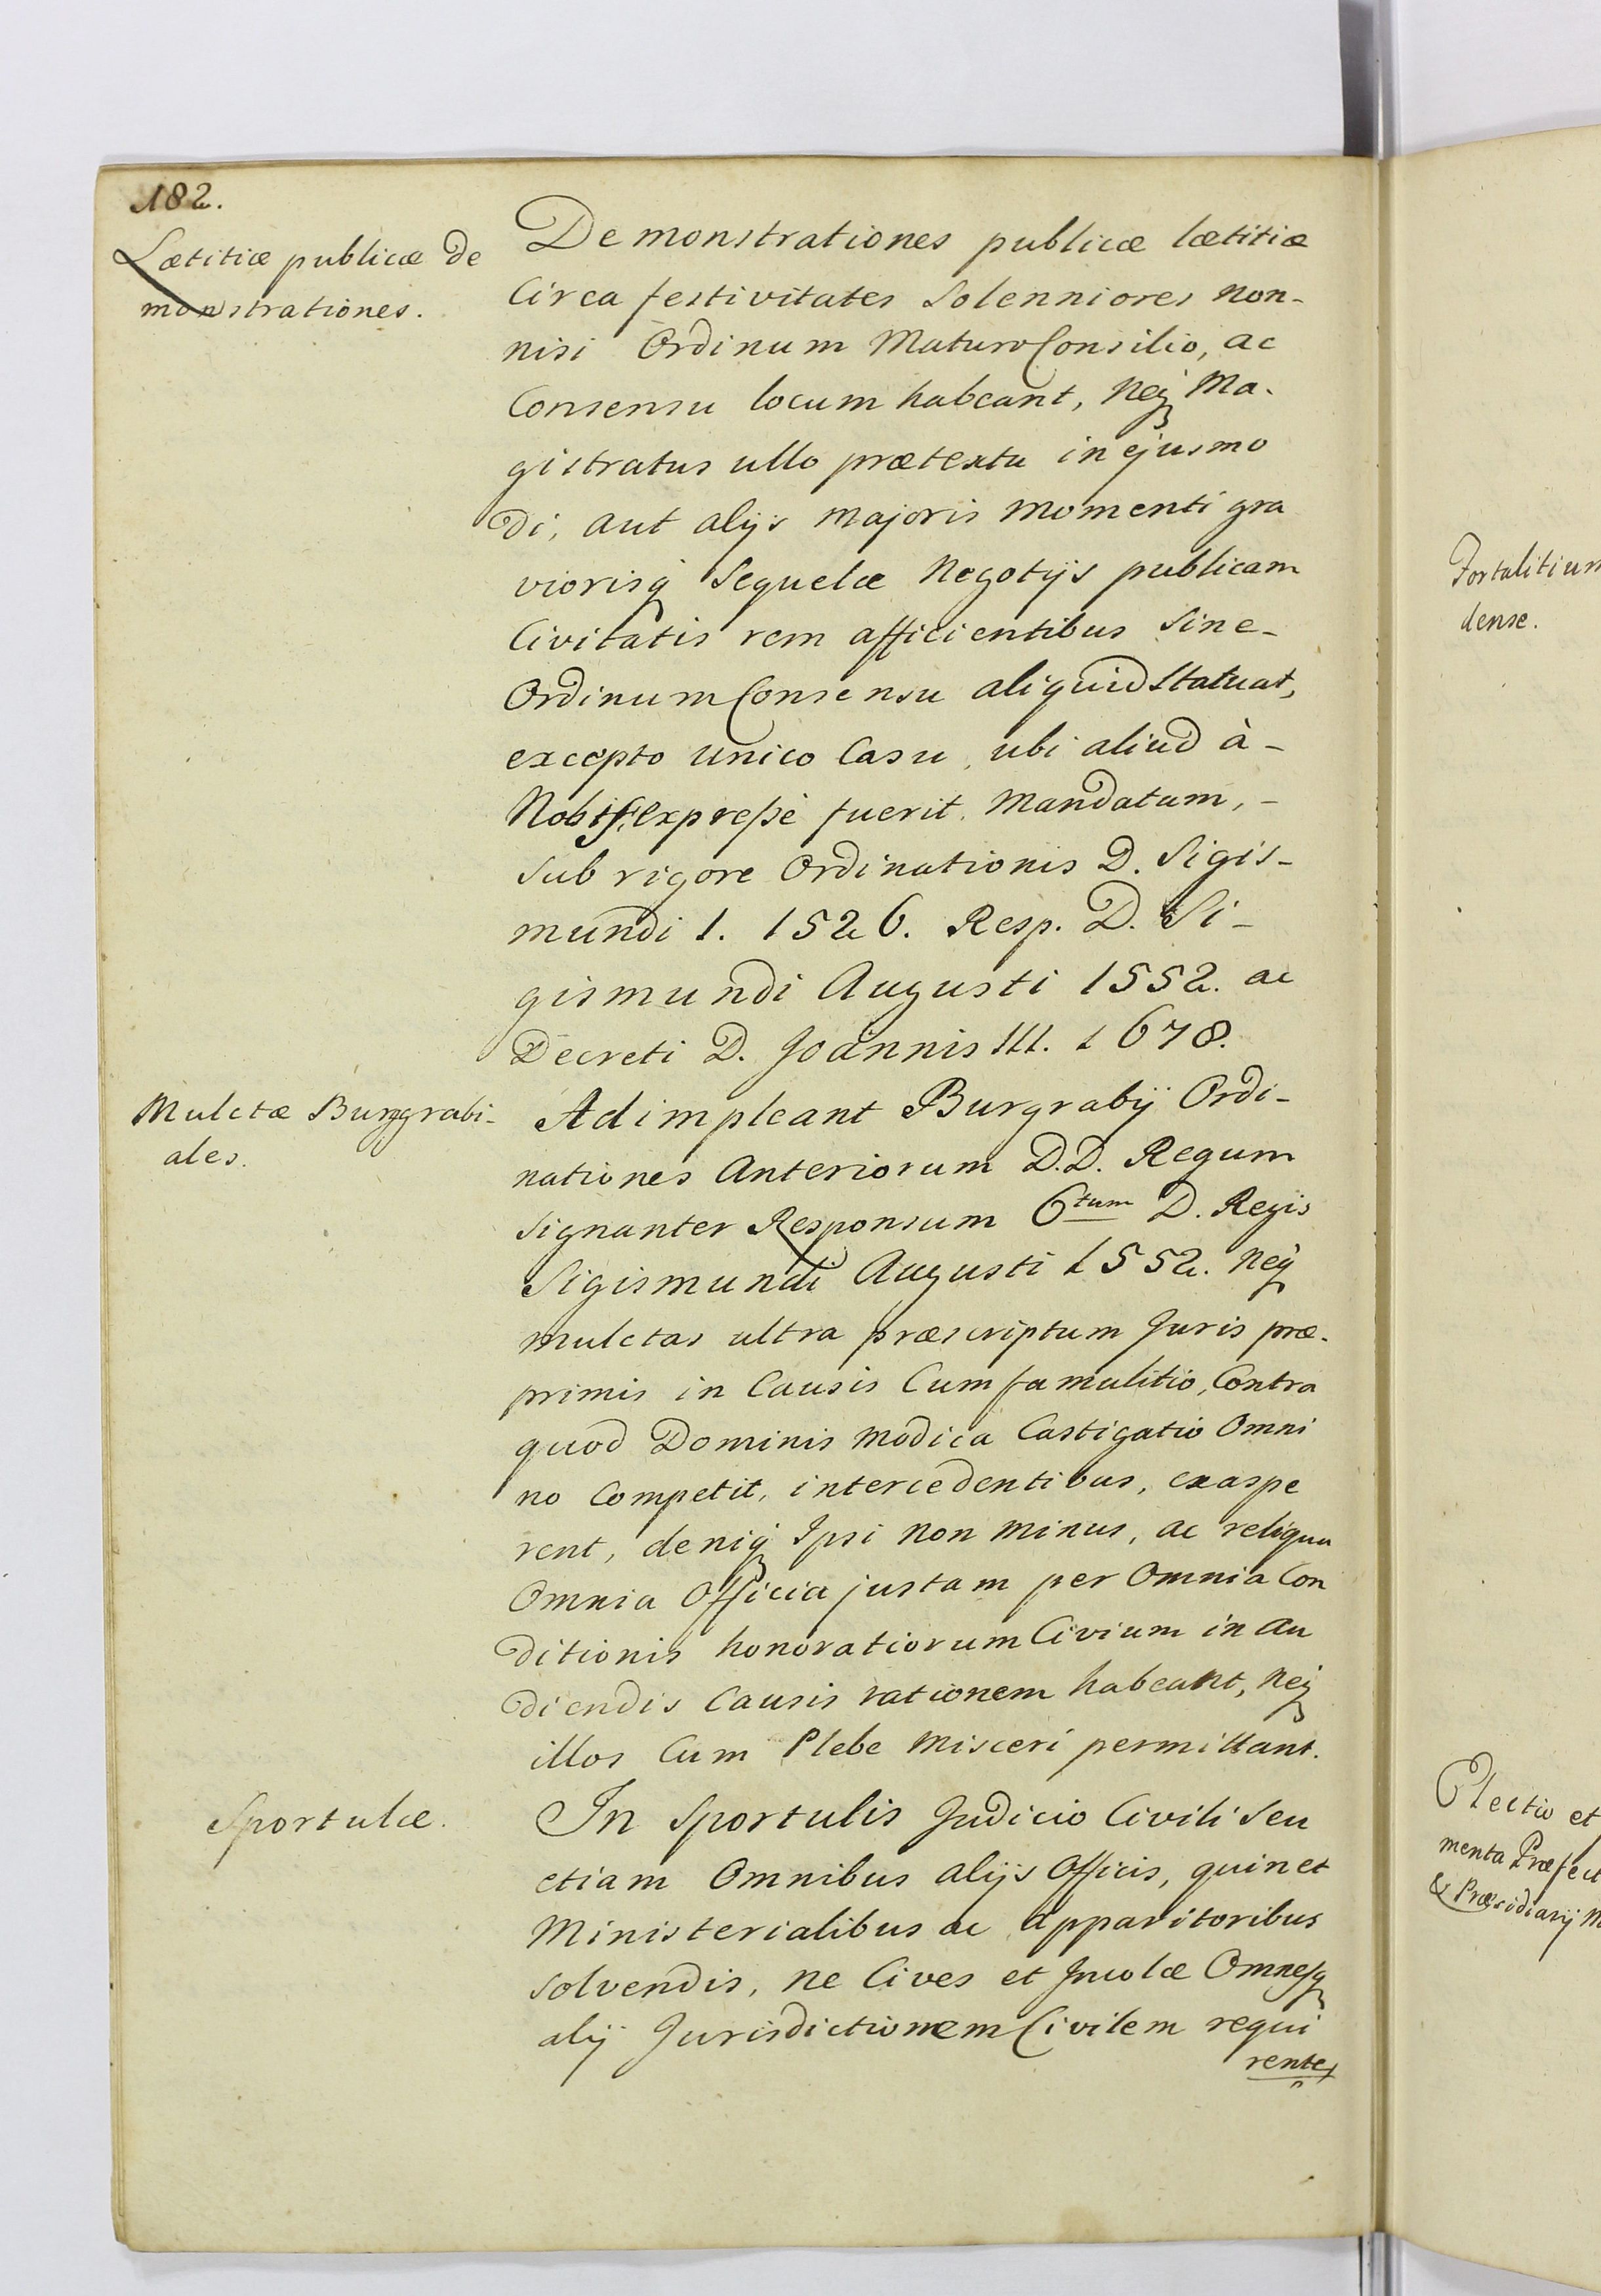 182.
Lætitiæ publicæ De
monstrationes.
Demonstrationes publicæ lætitiæ
Circa festivitates Solenniores non-
nisi Ordinum Maturo Consilio, ac
Consensu locum habeant, neq Ma-
gistratus ullo prætextu in ejusmo
di, aut alijs majoris momenti gra
viorisq Sequelæ Negotijs publicam
Civitatis rem afficientibus Sine-
Ordinum Consensu aliquid Statuat,
excepto unico Casu, ubi aliud à-
Nobis expreßè fuerit. Mandatum,-
Sub rigore Ordinationis D. Sigis-
mundi 1. 1526. Resp. D. Si-
gismundi Augusti 1552. ac
Decreti D. Joannis III. 1678.
Mulctæ Burggrabi-
ales.
Adimpleant Burgrabij Ordi-
nationes Anteriorum D.D. Regum
signanter Responsum 6tum D. Regis
Sigismundi Augusti 1552. neq
mulctas ultra præscriptum Juris præ-
primis in Causis Cum famulitio, Contra
quod Dominis modica Castigatio Omni
no Competit, intercedentibus, exaspe
rent, deniq Ipsi non minus, ac reliqua
Omnia Officia justam per Omnia Con
ditionis honoratiorum Civium in Au
diendis Causis rationem habeant, neq
illos Cum Plebe Misceri permittant.
Sportulæ.
In Sportulis Judicio Civili Seu
etiam Omnibus alijs Officis, quin et
Ministerialibus ac apparitoribus
solvendis, ne Cives et Incolæ Omnesq
alij Jurisdictionem Civilem requi
rentes
Fortalitium
dense.
Electio et
menta Præfect
& Præsidiarij M